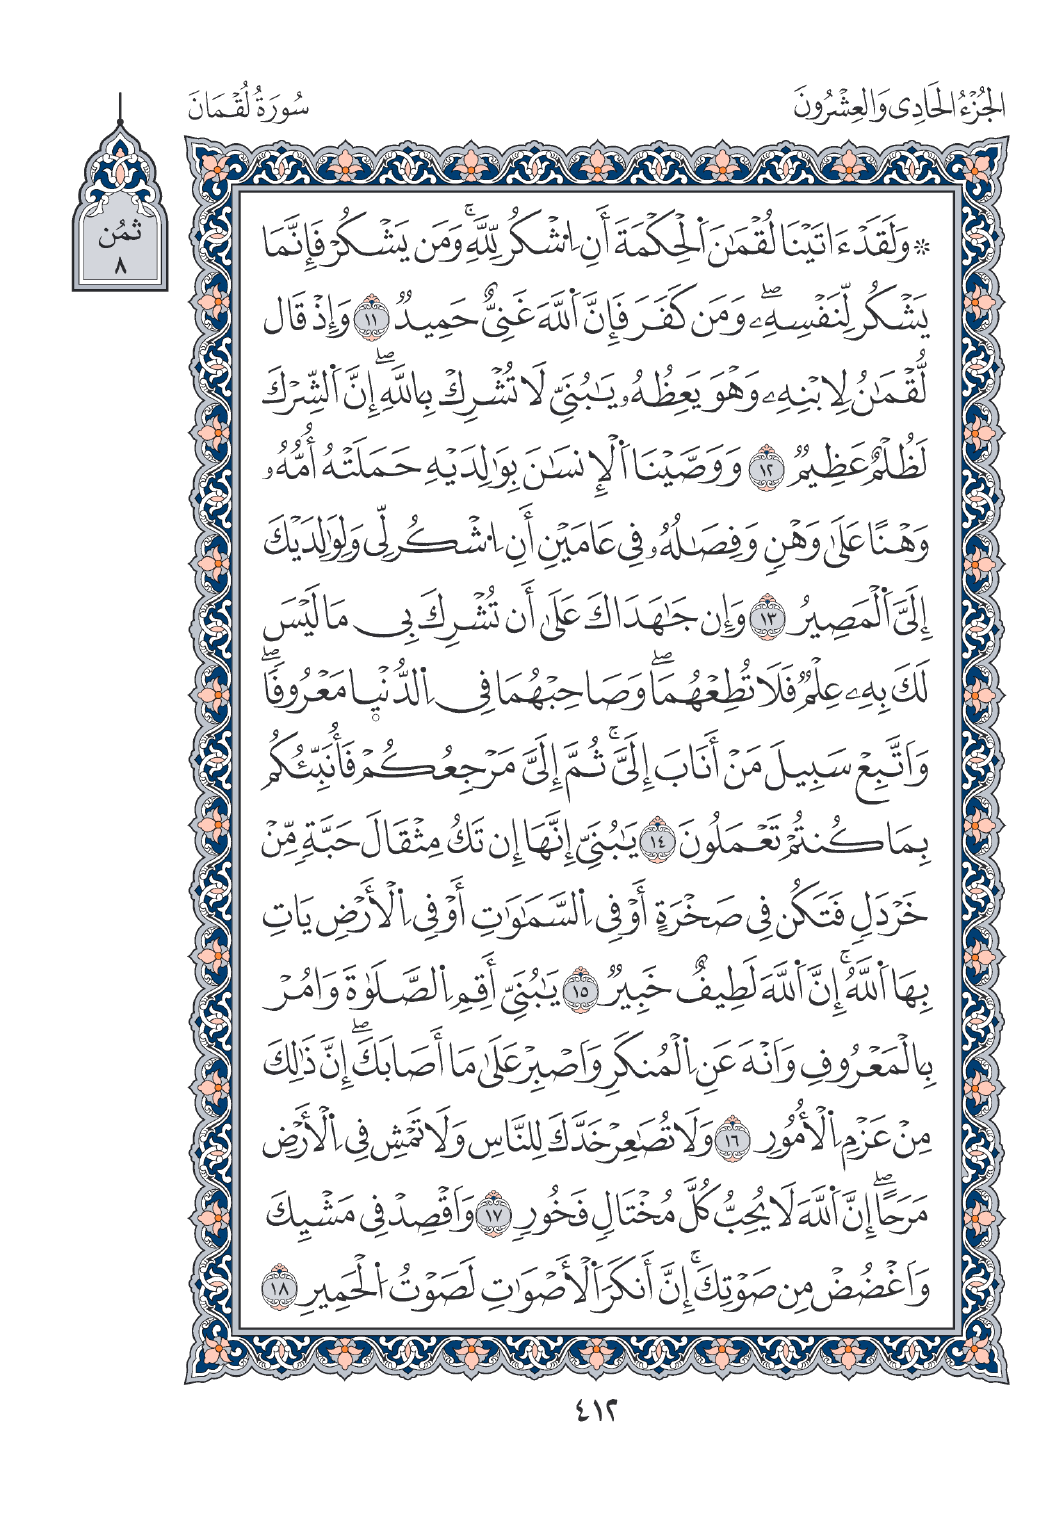 الجُزْءُ الحَادِى وَالعِشْرُونَ
سُورَةُ لُقْمَانَ
ثمُن
٨
۞ وَلَقَدَ ءَاتَيْنَا لُقْمَٰنَ اَ۬لْحِكْمَةَ أَنِ اُ۟شْكُرْ لِلَّهِۚ وَمَن يَشْكُرْ فَإِنَّمَا
يَشْكُرُ لِنَفْسِهِۦۖ وَمَن كَفَرَ فَإِنَّ اَ۬للَّهَ غَنِيٌّ حَمِيدٞ ١١ وَإِذْ قَالَ
لُقْمَٰنُ لِابْنِهِۦ وَهْوَ يَعِظُهُۥ يَٰبُنَيِّ لَا تُشْرِكْ بِاللَّهِۖ إِنَّ اَ۬لشِّرْكَ
لَظُلْمٌ عَظِيمٞ ١٢ وَوَصَّيْنَا اَ۬لْإِنسَٰنَ بِوَٰلِدَيْهِ حَمَلَتْهُ أُمُّهُۥ
وَهْناً عَلَىٰ وَهْنٖ وَفِصَٰلُهُۥ فِي عَامَيْنِ أَنِ اُ۟شْكُرْ لِي وَلِوَٰلِدَيْكَ
إِلَيَّ اَ۬لْمَصِيرُ ١٣ وَإِن جَٰهَدَاكَ عَلَىٰ أَن تُشْرِكَ بِي مَا لَيْسَ
لَكَ بِهِۦ عِلْمٞ فَلَا تُطِعْهُمَاۖ وَصَاحِبْهُمَا فِي اِ۬لدُّنْي۪ا مَعْرُوفاٗۖ
وَاَتَّبِعْ سَبِيلَ مَنْ أَنَابَ إِلَيَّۚ ثُمَّ إِلَيَّ مَرْجِعُكُمْ فَأُنَبِّئُكُم
بِمَا كُنتُمْ تَعْمَلُونَ ١٤ يَٰبُنَيِّ إِنَّهَا إِن تَكُ مِثْقَالَ حَبَّةٖ مِّنْ
خَرْدَلٖ فَتَكُن فِي صَخْرَةٍ أَوْ فِي اِ۬لسَّمَٰوَٰتِ أَوْ فِي اِ۬لْأَرْضِ يَاتِ
بِهَا اَ۬للَّهُۚ إِنَّ اَ۬للَّهَ لَطِيفٌ خَبِيرٞ ١٥ يَٰبُنَيِّ أَقِمِ اِ۬لصَّلَوٰةَ وَامُرْ
بِالْمَعْرُوفِ وَانْهَ عَنِ اِ۬لْمُنكَرِ وَاَصْبِرْ عَلَىٰ مَا أَصَابَكَۖ إِنَّ ذَٰلِكَ
مِنْ عَزْمِ اِ۬لْأُمُورِ ١٦ وَلَا تُصَٰعِرْ خَدَّكَ لِلنَّاسِ وَلَا تَمْشِ فِي اِ۬لْأَرْضِ
مَرَحاًۖ إِنَّ اَ۬للَّهَ لَا يُحِبُّ كُلَّ مُخْتَالٖ فَخُورٖ ١٧ وَاَقْصِدْ فِي مَشْيِكَ
وَاَغْضُضْ مِن صَوْتِكَۚ إِنَّ أَنكَرَ اَ۬لْأَصْوَٰتِ لَصَوْتُ اُ۬لْحَمِيرِ ١٨
٤١٢